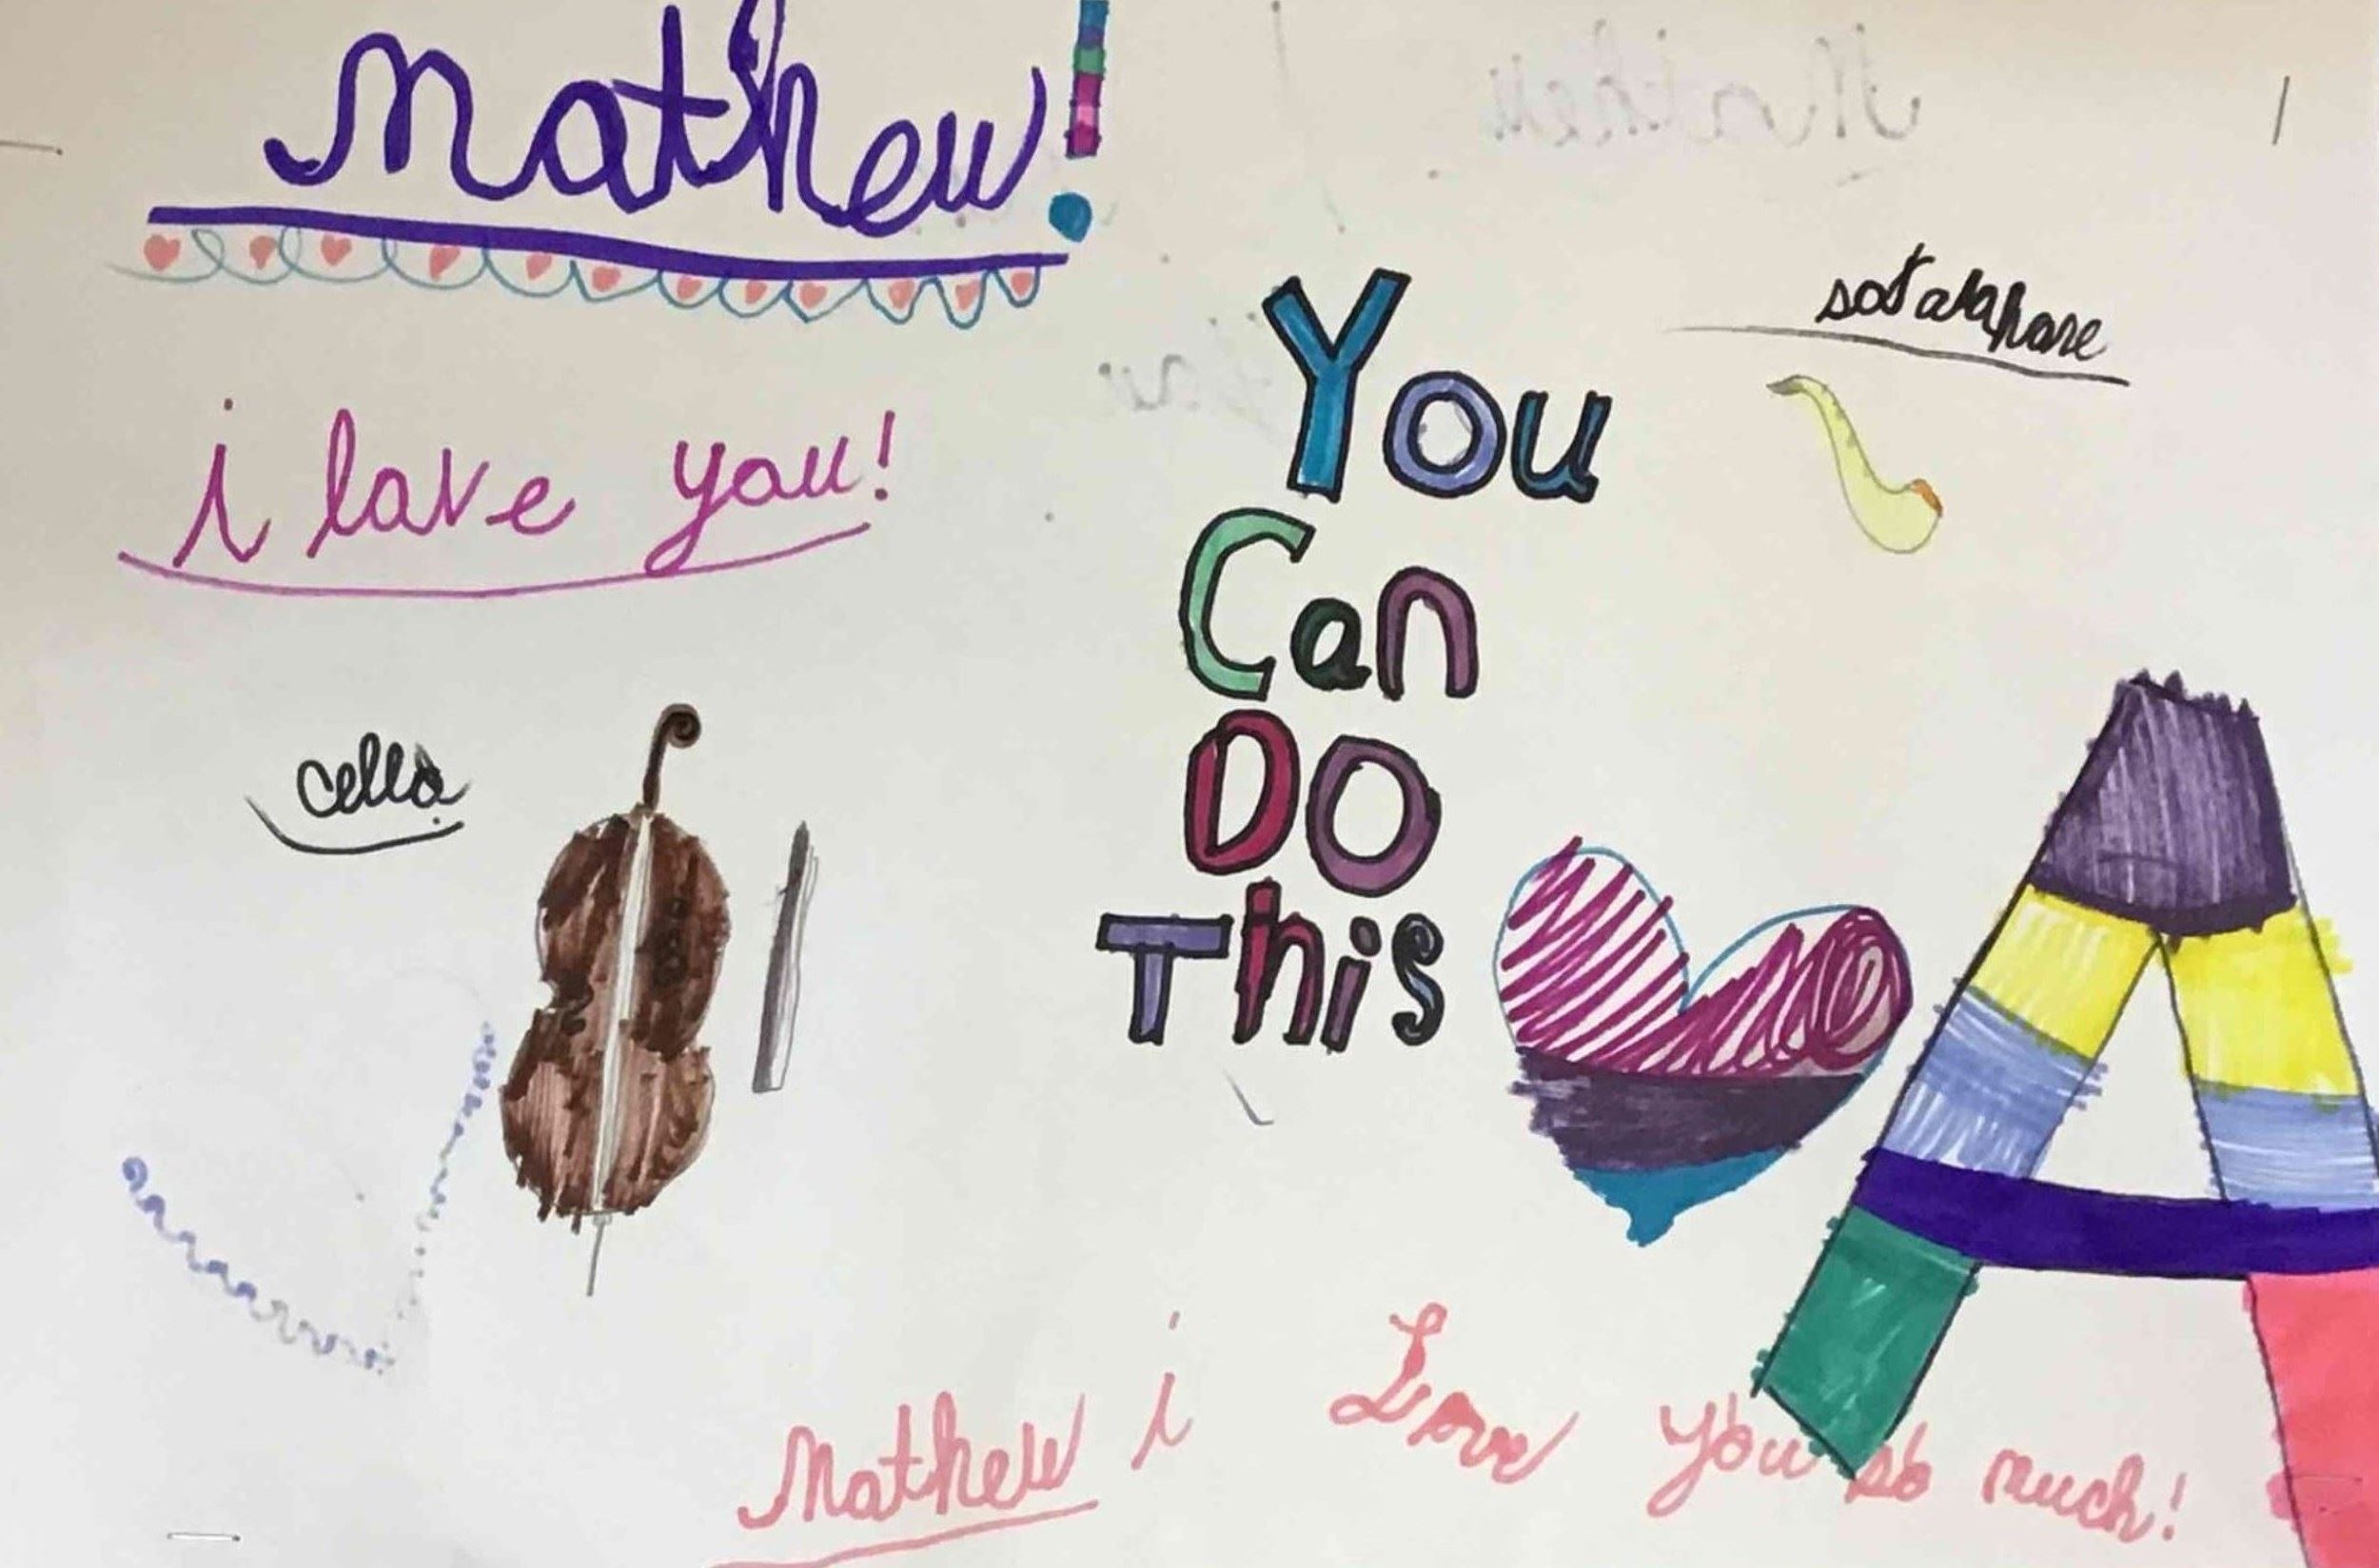 Mathew!
i love you!
You
Can
Do
This
cello
A
Mathew i Love you so much!